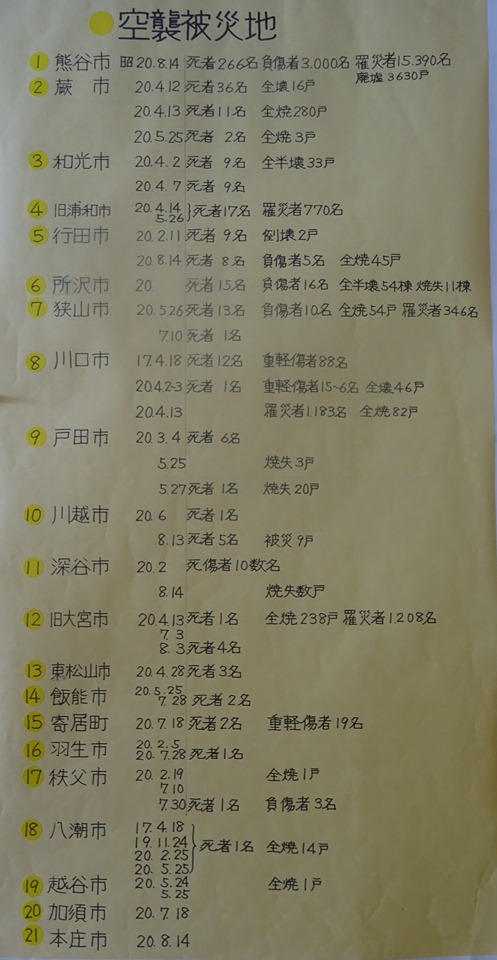 ●空襲被災地
1 熊谷市 昭20.8.14 死者266名 負傷者3.000名 罹災者15.390名
廃墟3630戸
2 蕨 市 20.4.12 死者36名 全壊16戸
20.4.13 死者11名 全焼280戸
20.5.25 死者 2名 全焼3戸
3 和光市 20.4.2 死者 9名 全半壊33戸
20.4.7 死者 9名
4 旧浦和市 20.4.14 5.26 } 死者17名 罹災者770名
5 行田市 20.2.11 死者 9名 倒壊2戸
20.8.14 死者 8名 負傷者5名 全焼45戸
6 所沢市 20 死者15名 負傷者16名 全半壊54棟 焼失11棟
7 狭山市 20.5.26 死者13名 負傷者10名 全焼54戸 罹災者346名
7.10 死者 1名
8 川口市 17.4.18 死者12名 重軽傷者88名
20.4.2-3 死者 1名 重軽傷者15~6名 全壊46戸
20.4.13 罹災者1.183名 全焼82戸
9 戸田市 20.3.4 死者 6名
5.25 焼失3戸
5.27 死者 1名 焼失20戸
10 川越市 20.6 死者1名
8.13 死者5名 被災9戸
11 深谷市 20.2 死傷者10数名
8.14 焼失数戸
12 旧大宮市 20.4.13 死者1名 全焼238戸 罹災者1.208名
7.3
8.3 死者4名
13 東松山市 20.4.28 死者3名
14 飯能市 20.5.25
7.28 死者2名
15 寄居町 20.7.18 死者2名 重軽傷者19名
16 羽生市 20.2.5
20.7.28 死者1名
17 秩父市 20.2.19 全焼1戸
7.10
7.30 死者1名 負傷者3名
18 八潮市 17.4.18
19.11.24
20.2.25
20.5.25 } 死者1名 全焼14戸
19 越谷市 20.5.24 全焼1戸
5.25
20 加須市 20.7.18
21 本庄市 20.8.14